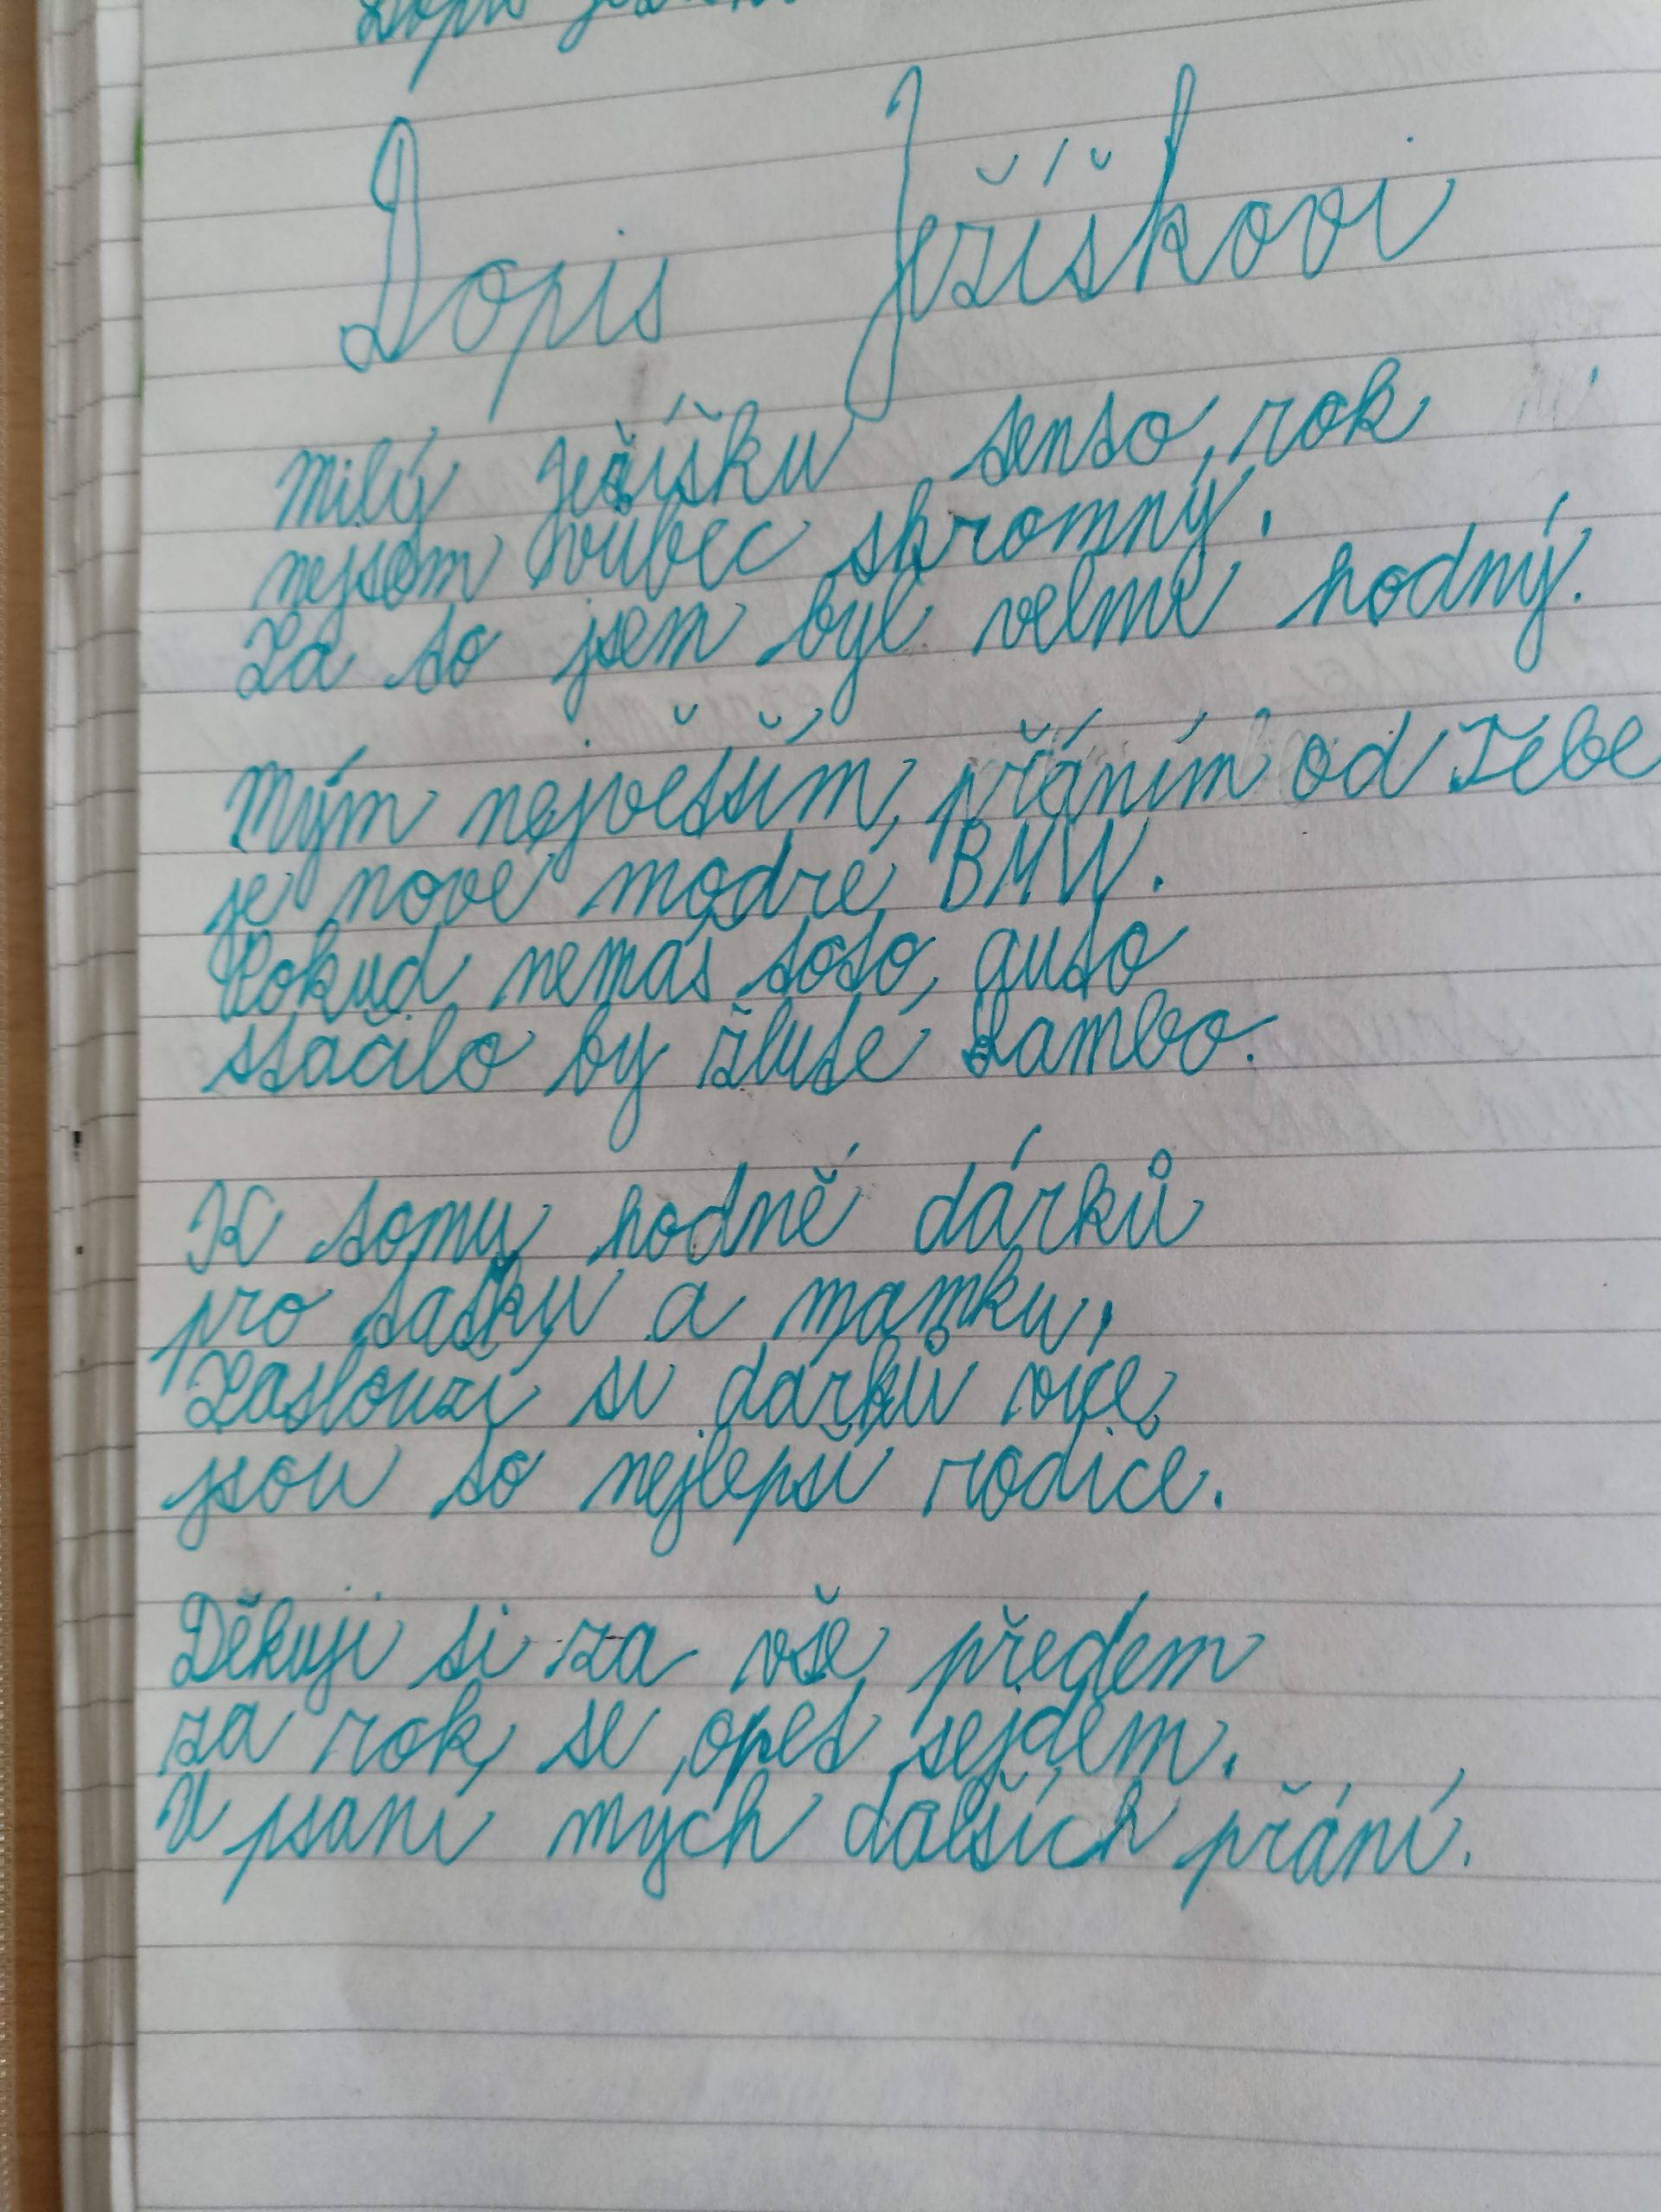 Dopis
Dopis Ježíškovi
Milý Ježíšku tento rok
nejsem vůbec skromný.
Za to jsem byl velmi hodný.
Mým největším přáním od Tebe
je nové modré BMW.
Pokud nemáš toto auto
stačilo by žluté Lambo.
K tomu hodně dárků
pro taťku a mamku,
Zaslouží si dárků více
jsou to nejlepší rodiče.
Děkuji si za vše předem
za rok se opět sejdem.
U psaní mých dalších přání.